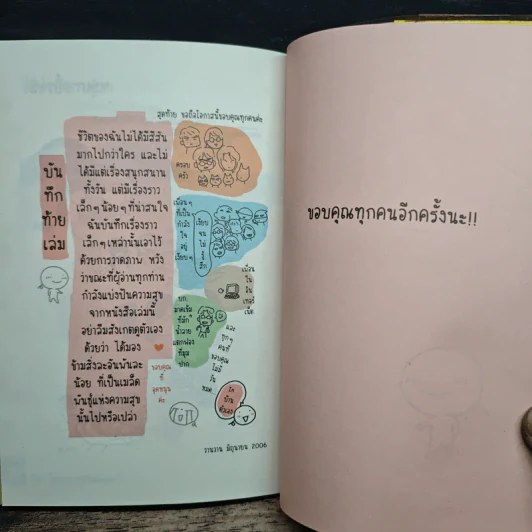 สุดท้าย ขอถือโอกาสนี้ขอบคุณทุกคนค่ะ
บัน
ทึก
ท้าย
เล่ม
ชีวิตของฉันไม่ได้มีสีสัน
มากไปกว่าใคร และไม่
ได้มีแต่เรื่องสนุกสนาน
ทั้งวัน แต่มีเรื่องราว
เล็กๆ น้อยๆ ที่น่าสนใจ
ฉันบันทึกเรื่องราว
เล็กๆ เหล่านั้นเอาไว้
ด้วยการวาดภาพ หวัง
ว่าขณะที่ผู้อ่านทุกท่าน
กำลังแบ่งปันความสุข
จากหนังสือเล่มนี้
อย่าลืมสังเกตดูตัวเอง
ด้วยว่า ได้มอง
ข้ามสิ่งละอันพันละ
น้อย ที่เป็นเมล็ด
พันธุ์แห่งความสุข
นั้นไปหรือเปล่า
ครอบ
ครัว
เพื่อนๆ
ที่เป็น
กำลัง
ใจ
อยู่
เงียบๆ
เงียบ
จน
ไม่
รู้
สึก
เพื่อน
ใน
อิน
เทอร์
เน็ต
บก.
น้ำลาย
แตกฟอง
ที่มุม
ปาก
และ
ทุกๆ
คนที่
ขอบคุณ
ไม่มี
วัน
หมด
ขอบคุณ
ที่
อุดหนุน
ค่ะ
รัก
บ้าน
ตัวเอง
วานวาน มิถุนายน 2006
ขอบคุณทุกคนอีกครั้งนะ!!